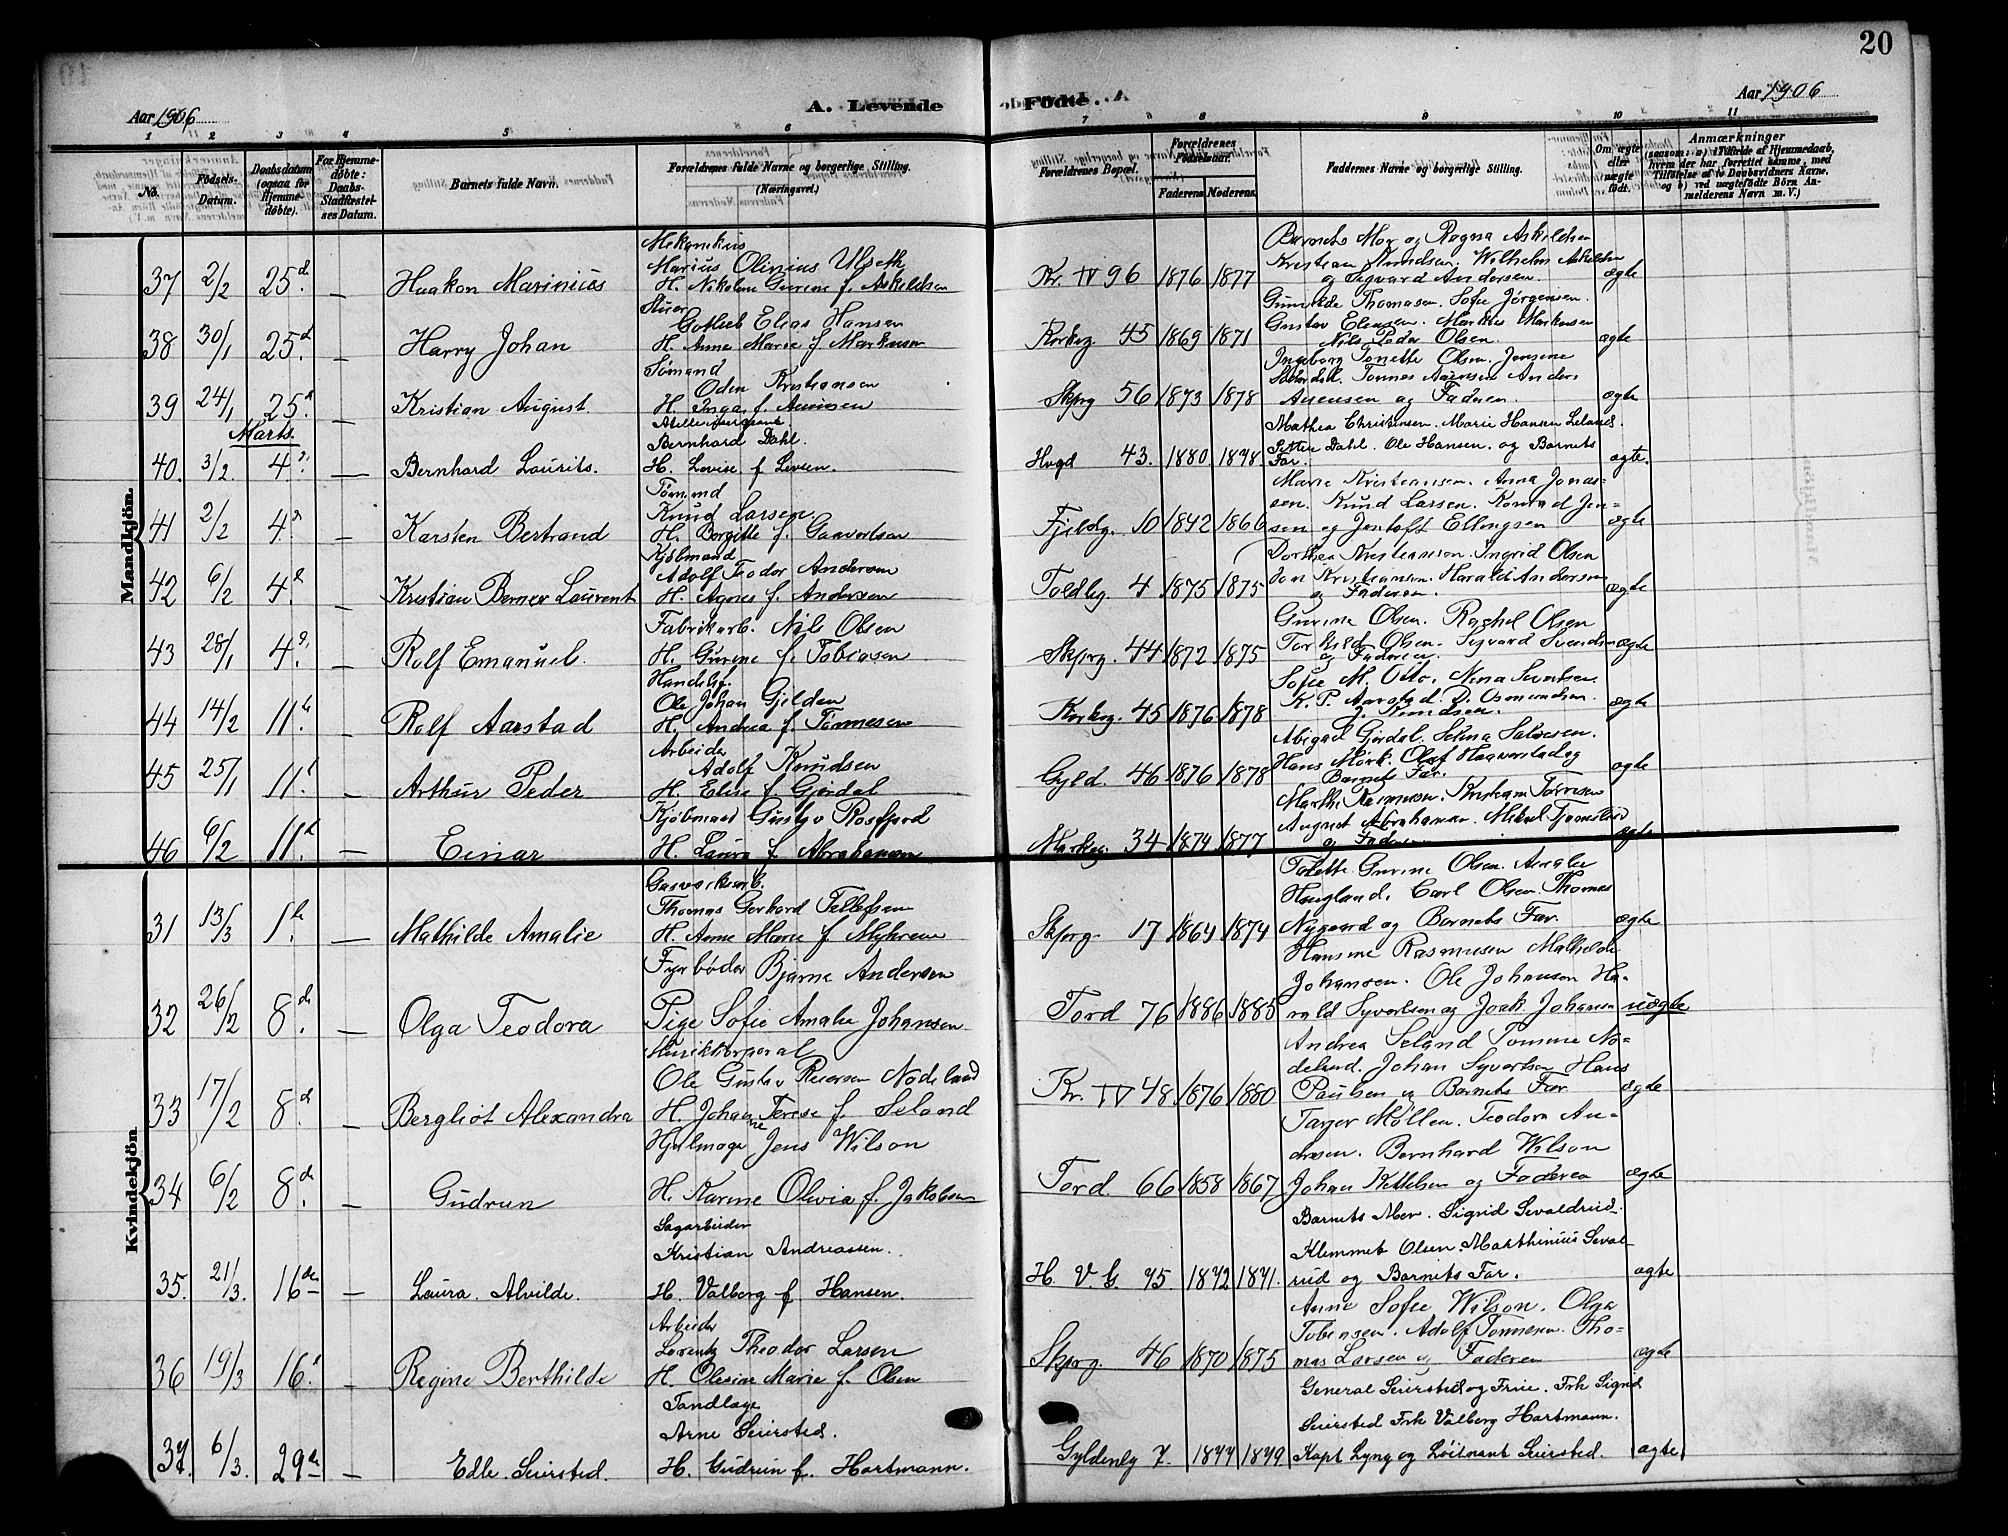 20
Aar 1906
A. Levende Fødte.
Aar 1906
1 2 3 4 5 6 7 8 9 10 11
No.
Fødsels-Datum.
Daabsdatum (ogsaa for Hjemme-døbte).
For Hjemme-døbte: Daabs-Stadfæstel-ses Datum.
Barnets fulde Navn.
Forældrenes fulde Navne og borgerlige Stilling. (Næringsvei.)
Forældrenes Bopæl.
Forældrenes Fødselsaar.
Faderens Moderens
Faddernes Navne og borgerlige Stilling.
Om ægte eller uægte født.
Anmærkninger
Mandkjön.
37 2/2 25d. — Haakon Marinius
Mekanikus
Marius Olinius Ulseth
H. Nikoline Gurine f. Askildsen
Kr. IV 96 1876 1877
Barnets Mor og Ragna Askildsen
Kristian Knudsen. Wilhelm Askildsen
og Sigvard Andersen.
ægte
38 30/1 25d — Harry Johan
Stuer
Gotlieb Elias Hansen
H. Anna Marie f. Markusen
Kirkeg 45 1869 1871
Gunvalde Thomasen. Sofie Jörgensen.
Gustav Eliasen. Markus Markusen
Nils Peder Olsen.
ægte
39 24/1 25d — Kristian August.
Sømand
Oden Kristiansen
H. Inga f. Aanensen
Skjerg 56 1873 1878
Ingeborg Tonette Olsen. Jensine
Tønnes Aanensen Anders
Aanensen og Faderen.
ægte
Marts.
40. 3/2. 4d. — Bernhard Laurits.
Bernhard Dahl.
H. Lovise f. Iversen.
Hvgd 43. 1880 1878
Mathea Christensen. Marie Hansen Leland.
Petter Dahl. Ole Hansen. og Barnets
Far.
ægte.
41 2/2 4d. — Karsten Bertrand
Tømmd
Knud Larsen.
H. Borgitte f. Gaavertsen
Fjeldg. 10 1842 1866
Marie Kristiansen. Anna Jonas-
sen. Knud Larsen. Konrad Jen-
sen og Jentoft Ellingsen
ægte
42 6/2 4d. — Kristian Berner Laurent
Kjölmand
Adolf Teodor Andersen
H. Agnes f. Andersen
Toldbg. 4 1875 1875
Dorthea Kristiansen. Ingrid Olsen
Jon Kristiansen. Harald Andersen
og Faderen.
ægte
43 28/1 4d. — Rolf Emanuel.
Fabrikarb. Nils Olsen
H. Gurine f. Tobiasen
Skjerg. 44 1872 1875
Gurine Olsen. Rachel Olsen
Torkild Olsen. Sigvard Svendsen
og Faderen.
ægte
44 14/2 11te — Rolf Aarstad
Handelsf.
Ole Johan Gjelden
H. Andrea f. Tønnesen
Kirkeg. 45 1876 1878
Sofie M. Otto. Nina Sivertsen.
K. P. Aarstad. D. Osmundsen.
J. Knudsen.
ægte
45 25/1 11t. — Arthur Peder
Arbeider
Adolf Knudsen
H. Elise f. Gjerdal
Gyld. 46 1876 1878
Abigael Gjerdal. Selma Salvesen.
Hans Mörk. Olaf Haaverstad og
Barnets Far.
ægte
46 6/2 11t. — Einar
Kjøbmand Gustav Rosfjord
H. Laura f. Abrahamsen
Markeg. 34 1874 1877
Marthe Rasmusen. Kristiane Torresen
August Abrahamsen. Mikael Tjomsland
og Faderen
ægte
Kvindekjön.
31 13/3 1te. — Mathilde Amalie
Gasverksarb.
Thomas Gerhard Tellefsen
H. Anne Marie f. Myhren
Skjerg. 17 1864 1874
Tolette Gurine Olsen. Amalie
Haugland. Carl Olsen. Thomas
Nygaard og Barnets Far.
ægte
32 26/2 8de. — Olga Teodora
Fyrbøder Bjarne Andersen
Pige Sofie Amalie Johansen.
Tord 76 1886 1885
Hansine Rasmussen Mathilde
Johansen. Ole Johansen Ha-
rald Syvertsen og Joak. Johansen
uægte
33 17/2 8d. — Bergliot Alexandra
Musikkorporal
Ole Gustav Reiersen Nodeland
H. Johanne Terese f. Seland
Kr. IV 48 1876 1880
Andrea Seland Tomine No-
delund. Johan Syvertsen Hans
Paulsen og Barnets Far
ægte
34 6/2 8de. — Gudrun
Hjulmager Jens Wilson
H. Karine Olivia f. Jakobsen
Tord. 66 1858 1867
Tarjer Möllen. Teodora An-
dresen. Bernhard Wilson
Johan Kittelsen og Faderen
ægte
35. 21/3. 16de — Laura. Alvilde.
Sagarbeider
Kristian Andreassen.
H. Valborg f. Hansen.
H. V. G. 45. 1872 1871.
Barnets Mor. Sigrid Sevaldrud.
Klemmet Olsen. Marthinius Seval-
rud og Barnets Far.
ægte
36 19/3 16d. — Regine Berthilde
Arbeider
Lorentz Theodor Larsen
H. Olesine Marie f. Olsen
Skjerg. 46 1870 1875
Anne Sofie Wilson. Olga
Tobiasen. Adolf Tønnesen. Tho-
mas Larsen og Faderen
ægte
37. 6/3. 29de — Edle. Seiersted.
Tandlæge
Arne Seiersted.
H. Gudrun f. Hartmann.
Gyldenlg 7. 1877 1879
General Seiersted og Frue. Frk Sigrid
Seiersted Frk Valborg Hartmann.
Kapt Lyng og Löitnant Seiersted.
ægte